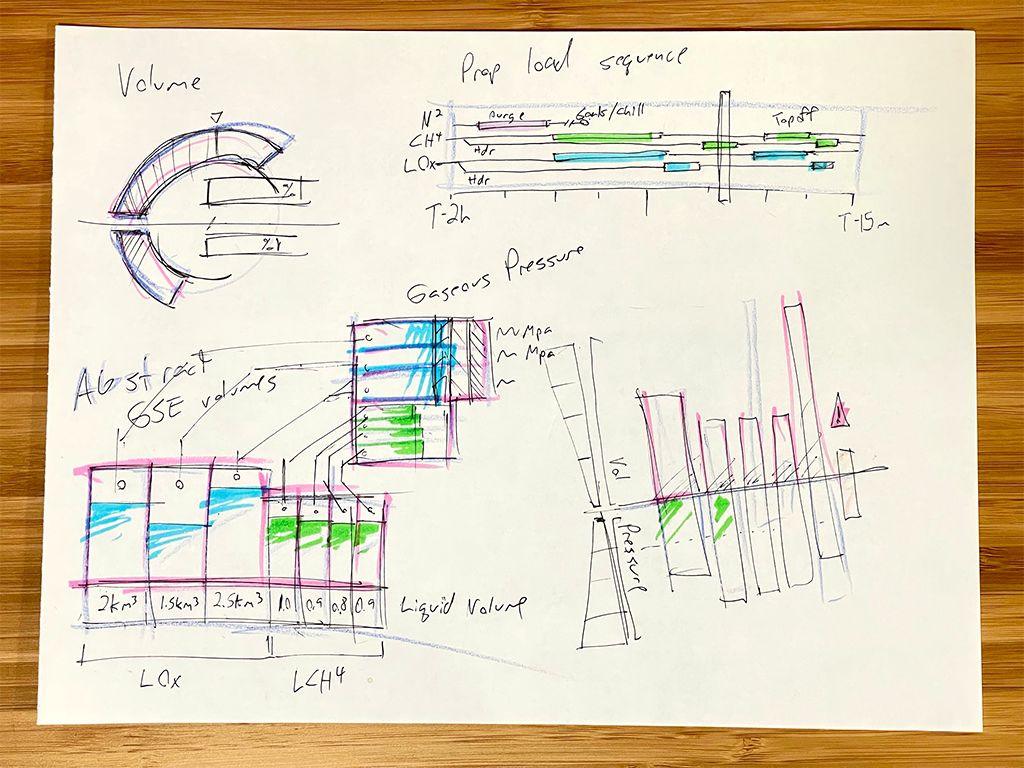 Volume
%
%
Prop load sequence
N²
Purge
CH⁴
Hdr
Topoff
LOx
Hdr
T-2h
T-15m
Gaseous Pressure
~~Mpa
~ Mpa
~
Abstract
GSE volumes
2km³
1.5km³
2.5km³
1.0
0.9
0.8
0.9
Liquid Volume
LOx
LCH⁴
Vol
Pressure
!